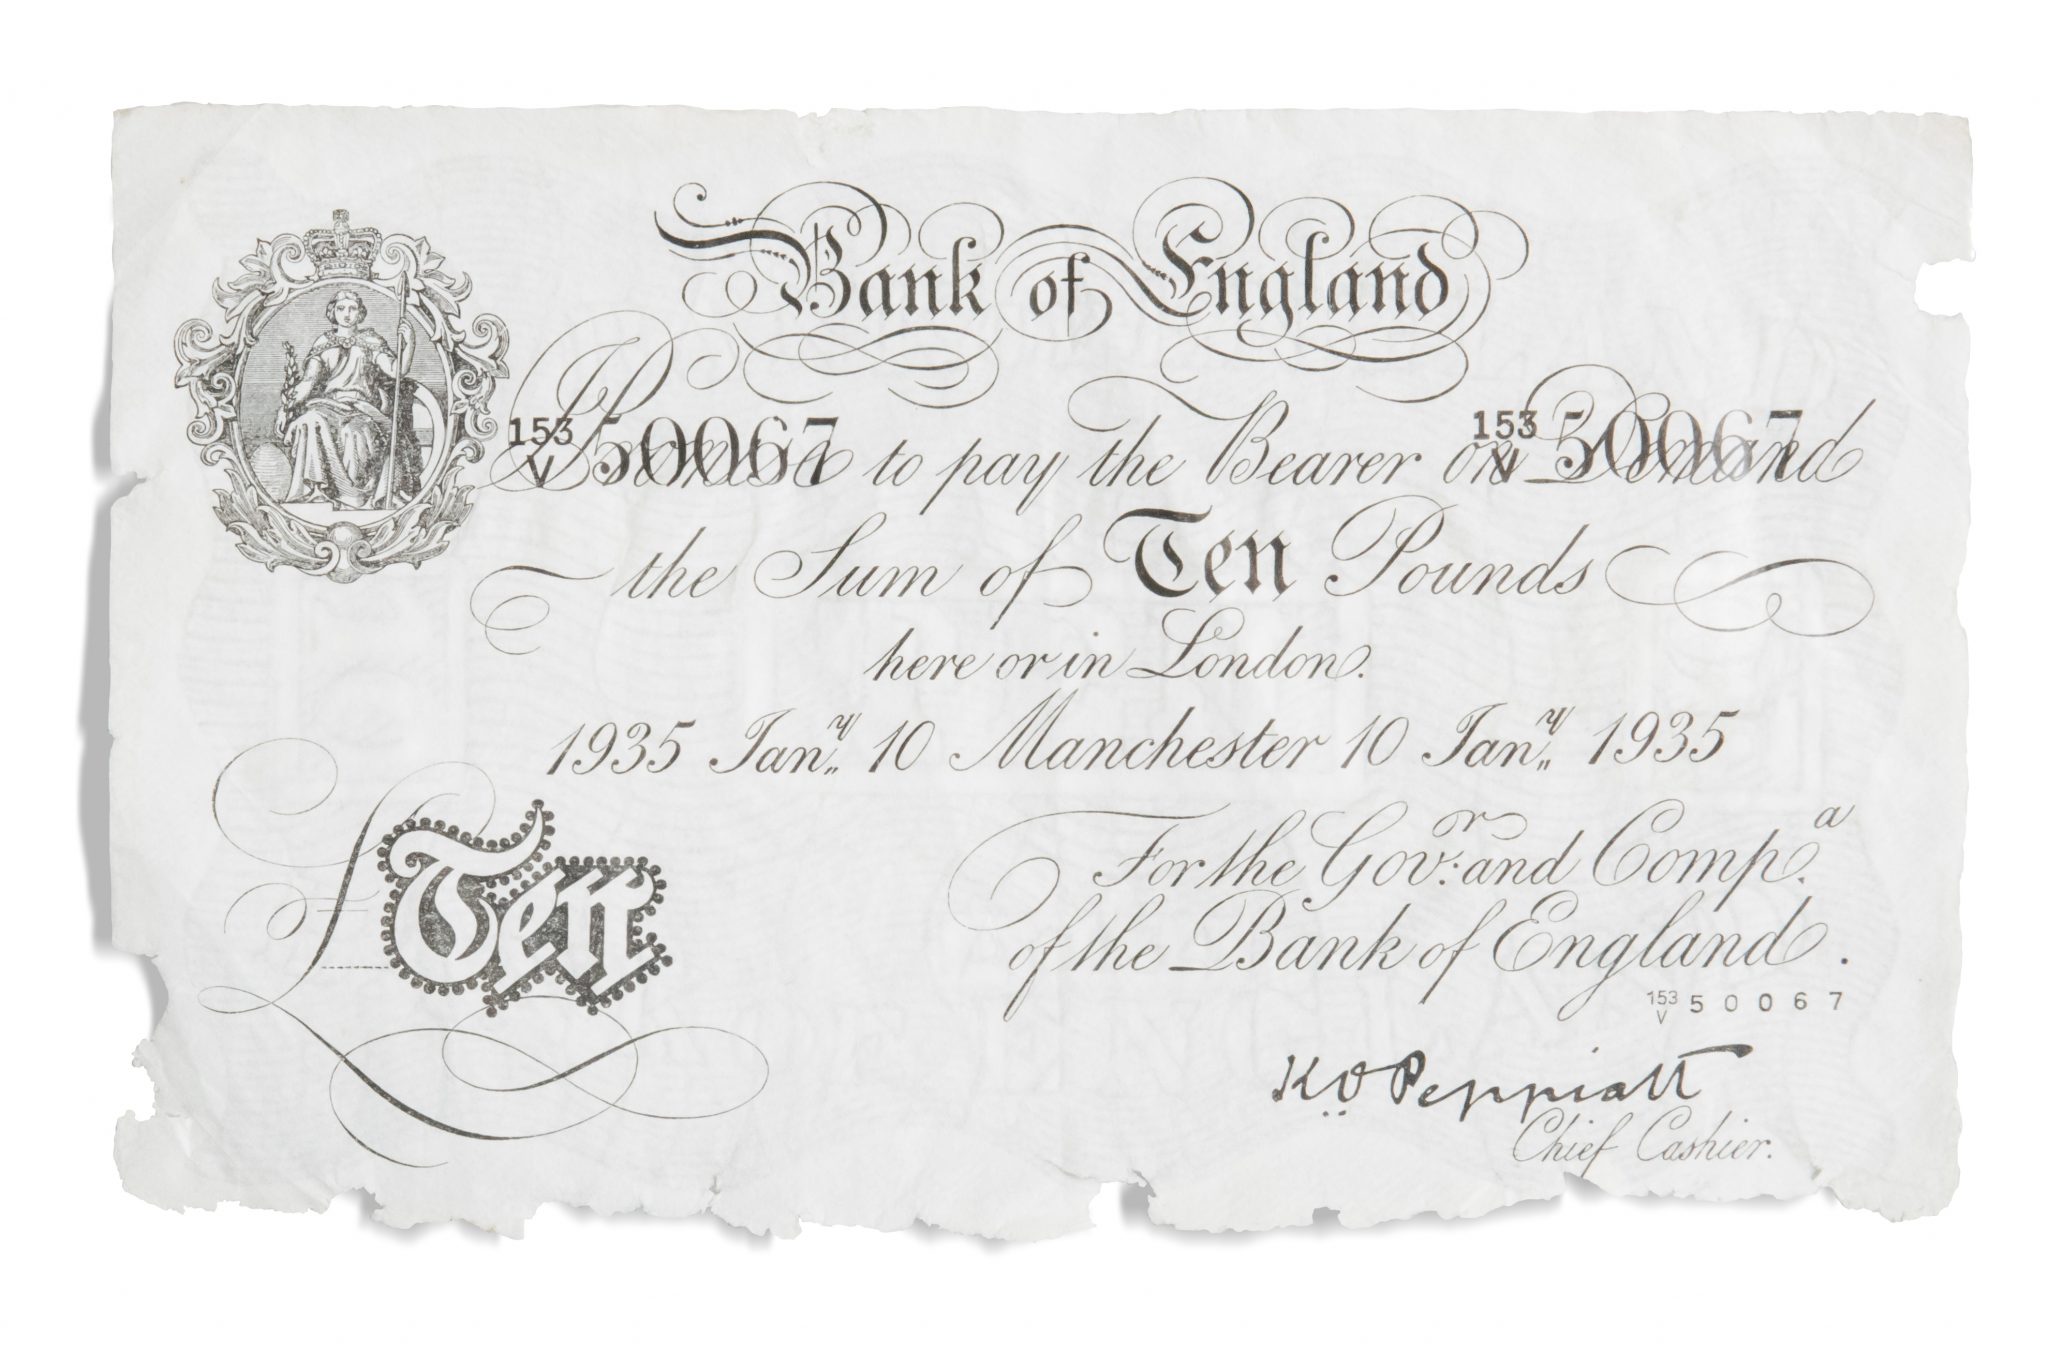 Bank of England
153
V 50067 153
V 50067
I Promise to pay the Bearer on Demand
the Sum of Ten Pounds
here or in London.
1935 Jan.y 10 Manchester 10 Jan.y 1935
£Ten
For the Gov:or and Comp.a
of the Bank of England.
153
V 50067
K.O. Peppiatt
Chief Cashier.